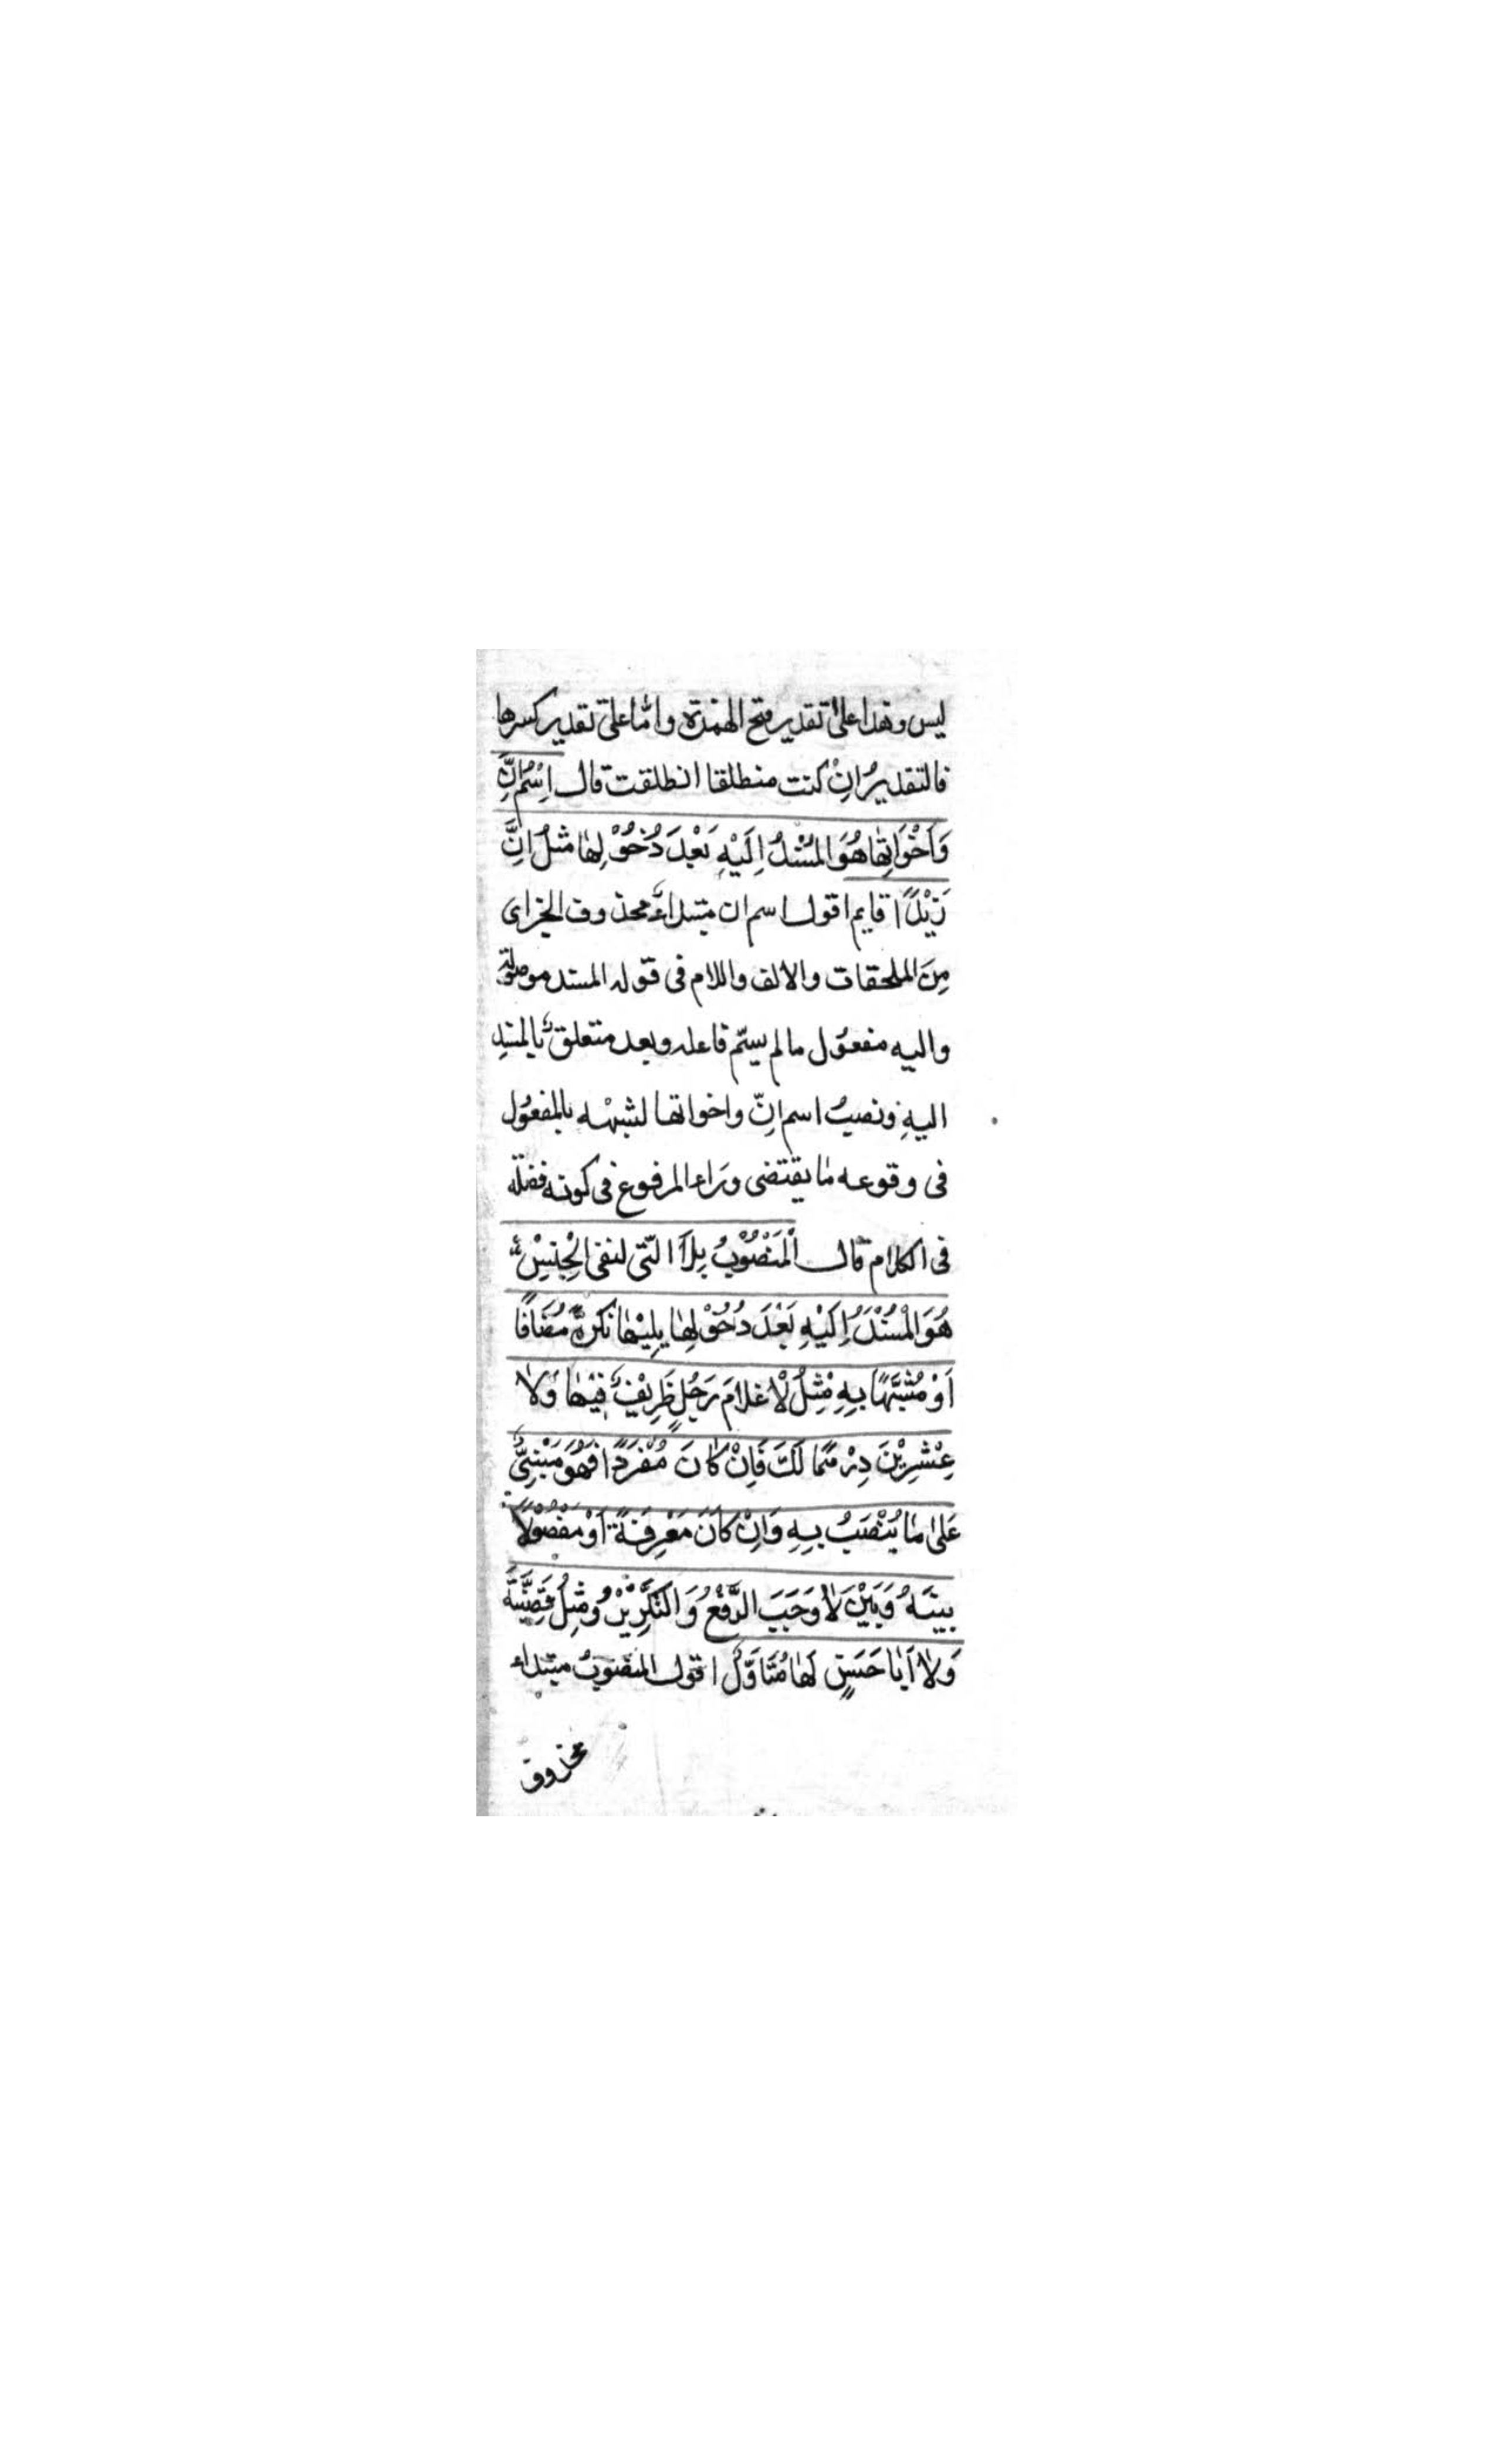 ليس وهذا على تقدير فتح الهمزة واما على تقدير كسرها
فالتقديرُ اِنْ كنت منطلقا انطلقت قال اِسْمُ اِنَّ
وَاَخْوَاتِهَا هُوَ المُسْنَدُ اِلَيْهِ بَعْدَ دُخُوْلِهَا مثلُ اِنَّ
زَيْدًا قايم اقول اسم ان مبتداءٌ محذوف الخبر اى
مِنَ الملحقات والالف واللام فى قوله المسند موصولة
واليه مفعول مالم يسمّ فاعله وبعد متعلقٌ بالمسندِ
اليهِ ونصبُ اسم اِنّ واخواتها لشبهْه بالمفعُول
فى وقوعه ما يقتضى وراء المرفوع فى كونه فضلة
فى الكلام قال اَلْمَنْصُوْبُ بِلَا الّتى لنفى الْجِنسِْ
هُوَ الْمُسْنَدُ اِلَيْهِ بَعْدَ دُخُوْلِهَا يليْهَا نَكِرَةً مُضَافًا
اَوْ مُشَبَّهًا بِهِ مِثْلُ لْا غلامَ رَجُلٍ ظَرِيْفٌ فِيْهَا وَلَا
عِشْرِيْنَ دِرْهَمًا لَكَ فَاِنْ كَانَ مُفْرَدًا فَهُوَ مَبْنِىٌّ
عَلىٰ مَا يُنْصَبُ بِهِ وَاِنْ كَانَ مَعْرِفَةً اَوْ مَفْصُوْلًا
بينَهُ وَبَيْنَ لَا وَجَبَ الرَّفْعُ وَالتَّكْرِيْرُ وَمِثْلُ قَضِيَّةٌ
وَلَا اَبَا حَسَنٍ لَهَا مُتَأَوَّلٌ اقول المنصوبُ مبتداء